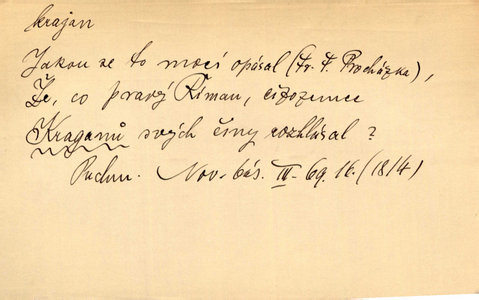 krajan
Jakou se to mocí opásal (Fr. F. Procházka),
Že, co pravý Říman, cizozemce
Kraganů svých činy rozhlásal?
Puchm. Nov. bás. IV-69. 16. (1814)